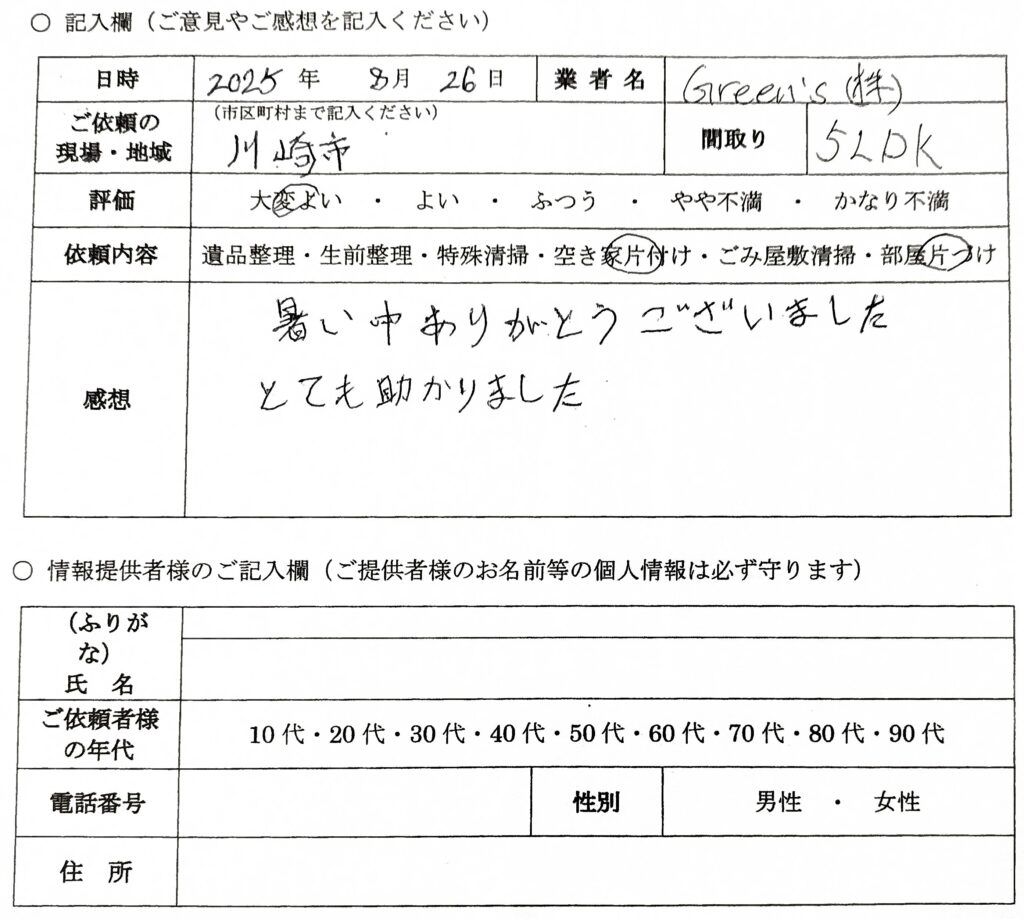 ○ 記入欄（ご意見やご感想を記入ください）
日時 2025 年 8月 26日 業者名 Green's (株)
ご依頼の現場・地域 （市区町村まで記入ください） 川崎市 間取り 5LDK
評価 大変よい ・ よい ・ ふつう ・ やや不満 ・ かなり不満
依頼内容 遺品整理・生前整理・特殊清掃・空き家片付け・ごみ屋敷清掃・部屋片づけ
感想
暑い中ありがとうございました
とても助かりました
○ 情報提供者様のご記入欄（ご提供者様のお名前等の個人情報は必ず守ります）
（ふりが
な）
氏 名
ご依頼者様
の年代 10代・20代・30代・40代・50代・60代・70代・80代・90代
電話番号 性別 男性 ・ 女性
住 所